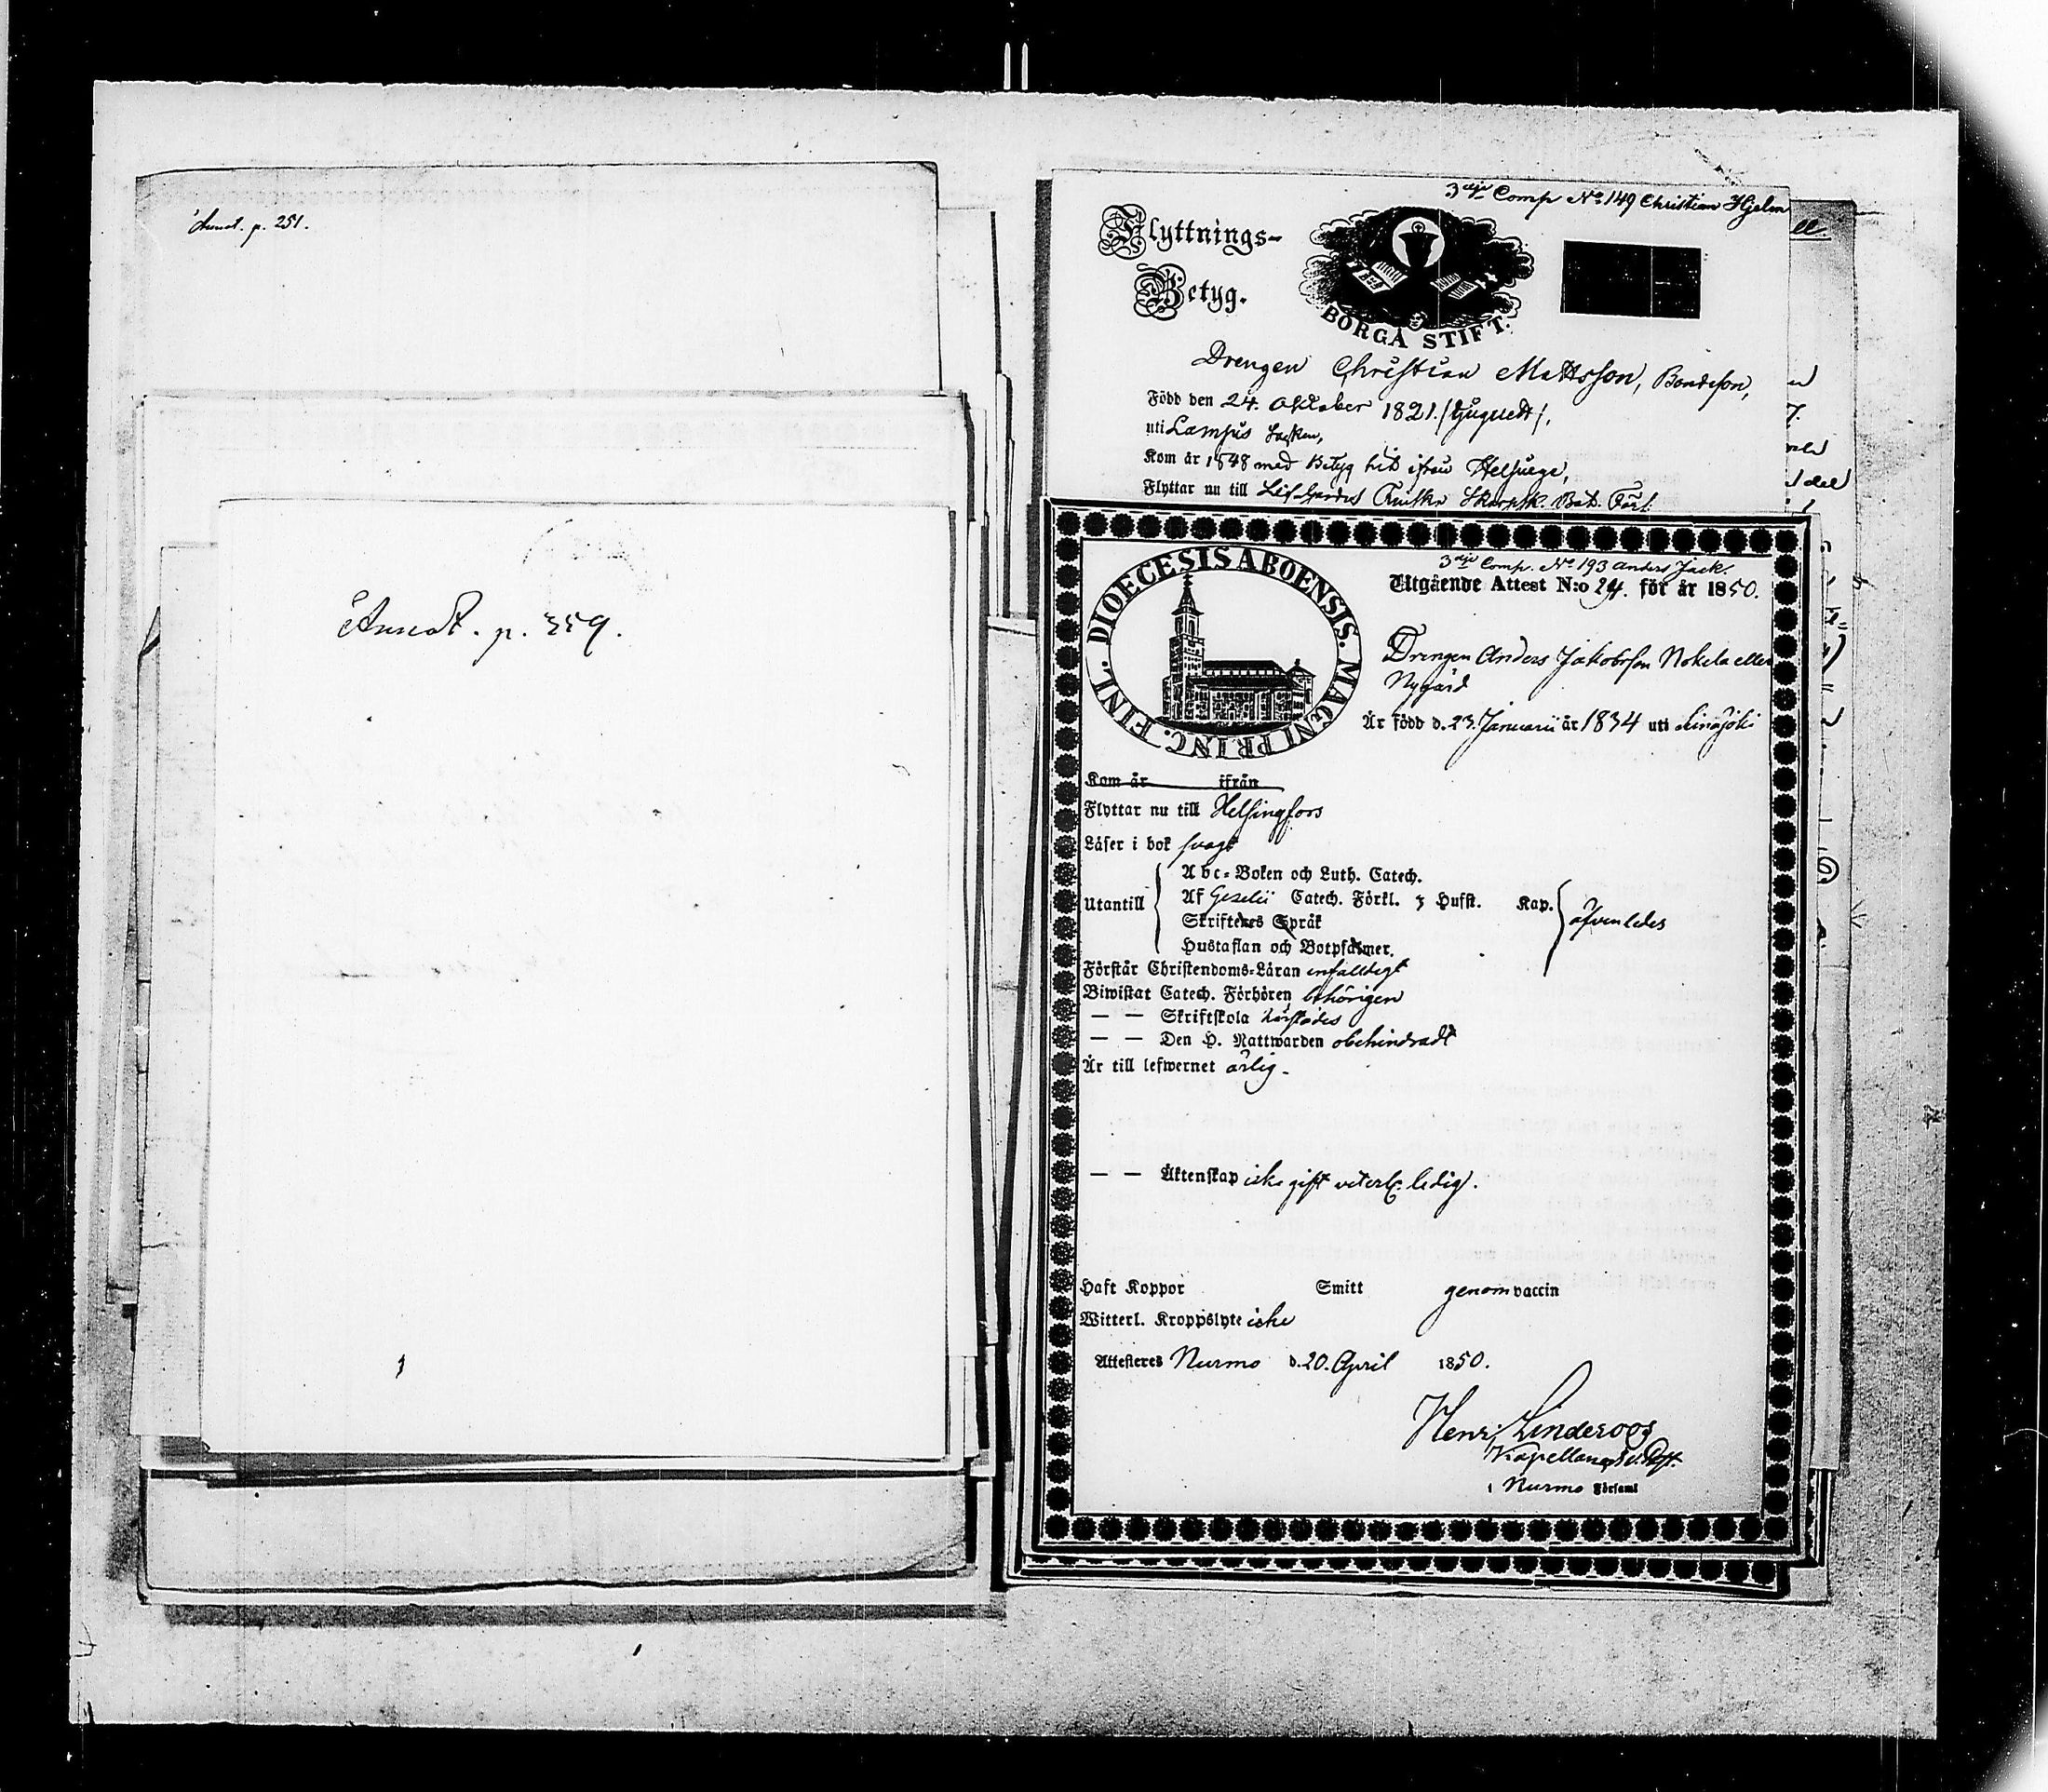 Annot. p. 251.
Annot. p. 359.
3dje Comp No 149 Christian Hjelm
Flyttnings-
Betyg.
BORGÅ STIFT.
Drengen Christian Mattsson, Bondeson,
Född den 24. Oktober 1821.
uti Lampis Socken,
Kom år 1848 med Betyg hit ifrån Helsinge,
Flyttar nu till Lif-Gardets Finska Skarpsk. Bat. Förs.
DIOECESIS ABOENSIS. MAGNI PRINC. FINL.
3dje Comp. No 193 Anders Jack.
Utgående Attest N:o 24. för år 1850.
Drengen Anders Jakobsson Nokela eller
Nygård
Är född d. 23. Januarii år 1834 uti
Kom år ifrån
Flyttar nu till Helsingfors
Läser i bok svagt
Utantill
Abc-Boken och Luth. Catech.
Af Gezelii Catech. Förkl. Husst. Kap.
Skriftenes Språk
Hustaflan och Botpsalmer.
äfvenledes
Förstår Christendoms-Läran enfalldigt
Biwistat Catech. Förhören behörigen
— — Skriftskola härstädes
— — Den H. Nattwarden obehindradt
Är till lefwernet ärlig.
— — Äktenskap icke gift veterl. ledig.
Haft Koppor Smitt genom vaccin
Witterl. Kroppslyte icke
Attesteres Nurmo d. 20. April 1850.
Henr. Linderoos
Kapellan
i Nurmo Församl